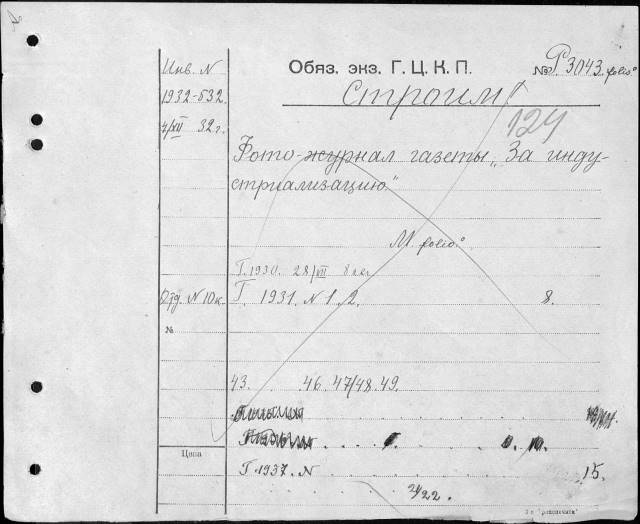 Инв. N
1932-532
4/XII 32 г.
Обяз. экз. Г. Ц. К. П.
№ Р3043 folio°
Строим
124
Фото-журнал газеты „За инду-
стриализацию"
M. folio°
Г. 1930. 28/VII
Отд. N 10
Г. 1931. N 1. 2. 8.
№
43. 46. 47/48. 49.
Цена
Г. 1937. N 15.
21/22.